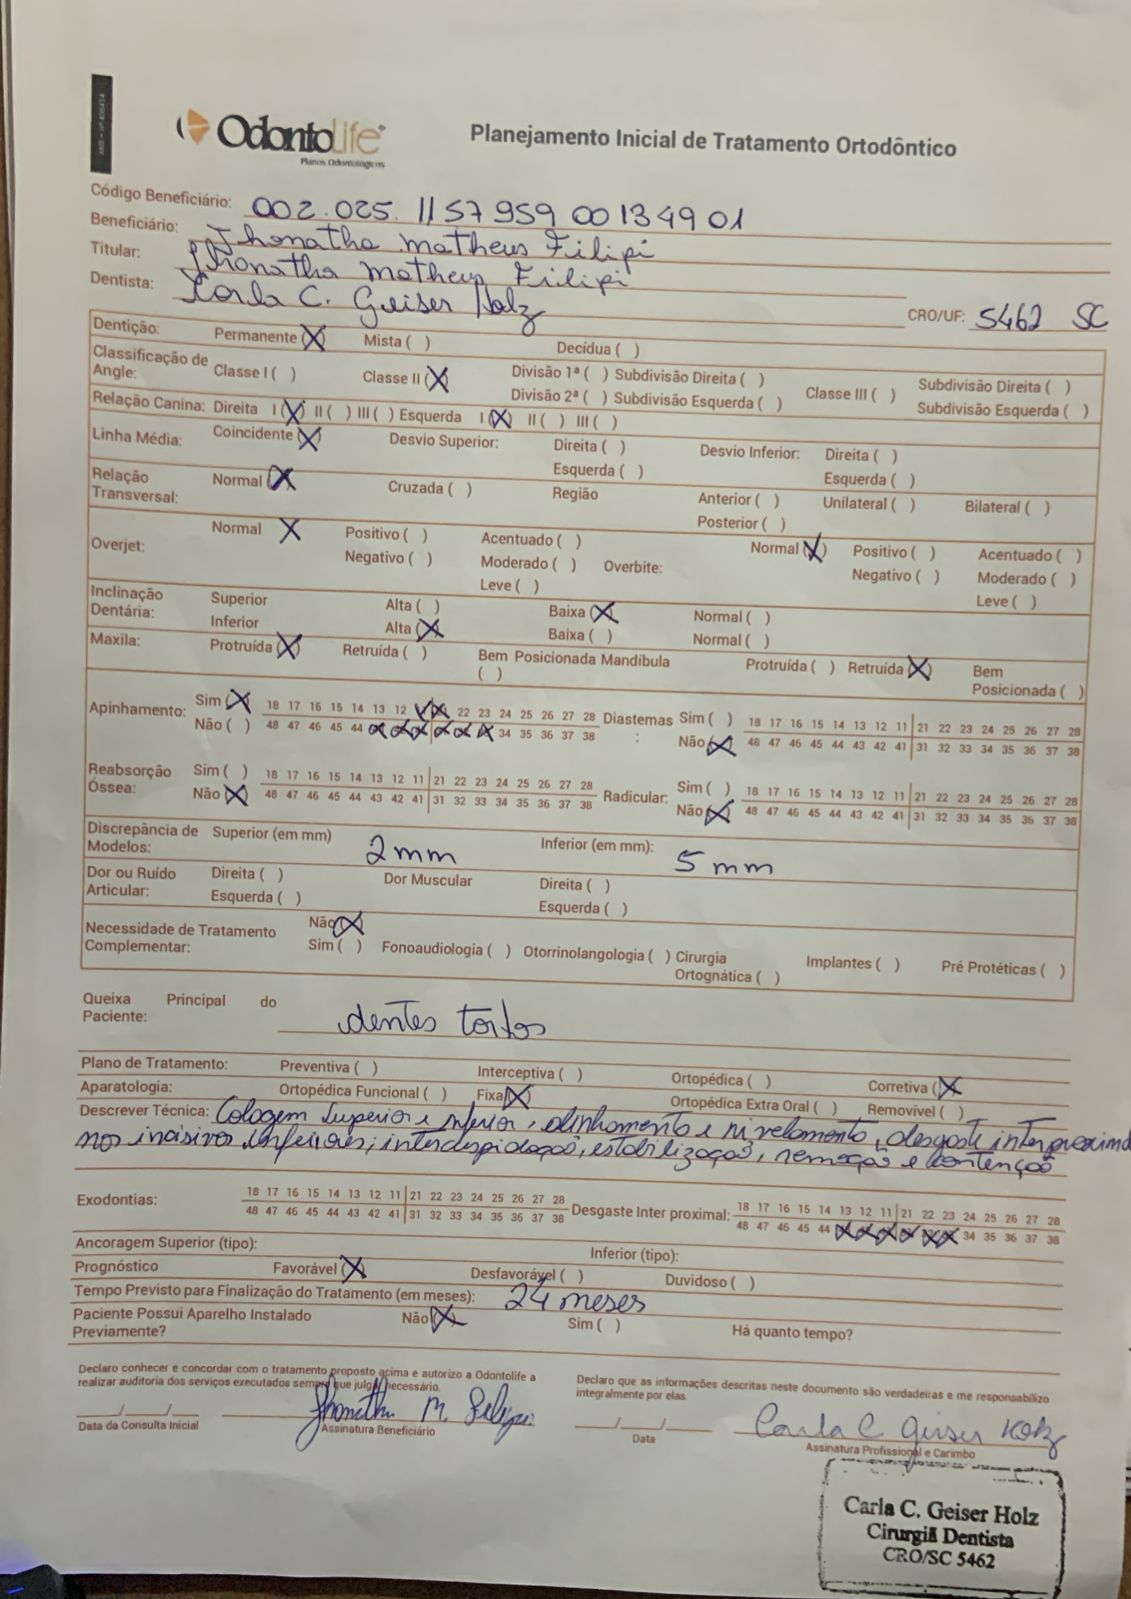 ANS - Nº 406414
OdontoLife
Planos Odontológicos
Planejamento Inicial de Tratamento Ortodôntico
Código Beneficiário: 002.025.1157 959 00 1349 01
Beneficiário: Jhonatha Matheus Filipi
Titular: Jhonatha Matheus Filipi
Dentista: Carla C. Geiser Holz CRO/UF: 5462 SC
Dentição: Permanente (X) Mista ( ) Decídua ( )
Classificação de Angle: Classe I ( ) Classe II (X) Divisão 1ª ( ) Subdivisão Direita ( ) Classe III ( ) Subdivisão Direita ( )
Divisão 2ª ( ) Subdivisão Esquerda ( ) Subdivisão Esquerda ( )
Relação Canina: Direita I (X) II ( ) III ( ) Esquerda I (X) II ( ) III ( )
Linha Média: Coincidente (X) Desvio Superior: Direita ( ) Desvio Inferior: Direita ( )
Esquerda ( ) Esquerda ( )
Relação Transversal: Normal (X) Cruzada ( ) Região Anterior ( ) Unilateral ( ) Bilateral ( )
Posterior ( )
Overjet: Normal X Positivo ( ) Acentuado ( ) Overbite: Normal (X) Positivo ( ) Acentuado ( )
Negativo ( ) Moderado ( ) Negativo ( ) Moderado ( )
Leve ( ) Leve ( )
Inclinação Dentária: Superior Alta ( ) Baixa (X) Normal ( )
Inferior Alta (X) Baixa ( ) Normal ( )
Maxila: Protruída (X) Retruída ( ) Bem Posicionada Mandíbula ( ) Protruída ( ) Retruída (X) Bem Posicionada ( )
Apinhamento: Sim (X) 18 17 16 15 14 13 12 X X 22 23 24 25 26 27 28 Diastemas : Sim ( ) 18 17 16 15 14 13 12 11 21 22 23 24 25 26 27 28
Não ( ) 48 47 46 45 44 X X X X X X 34 35 36 37 38 Não (X) 48 47 46 45 44 43 42 41 31 32 33 34 35 36 37 38
Reabsorção Óssea: Sim ( ) 18 17 16 15 14 13 12 11 21 22 23 24 25 26 27 28 Radicular: Sim ( ) 18 17 16 15 14 13 12 11 21 22 23 24 25 26 27 28
Não (X) 48 47 46 45 44 43 42 41 31 32 33 34 35 36 37 38 Não (X) 48 47 46 45 44 43 42 41 31 32 33 34 35 36 37 38
Discrepância de Modelos: Superior (em mm) 2 mm Inferior (em mm): 5 mm
Dor ou Ruído Articular: Direita ( ) Dor Muscular Direita ( )
Esquerda ( ) Esquerda ( )
Necessidade de Tratamento Complementar: Não (X)
Sim ( ) Fonoaudiologia ( ) Otorrinolangologia ( ) Cirurgia Ortognática ( ) Implantes ( ) Pré Protéticas ( )
Queixa Principal do Paciente: dentes tortos
Plano de Tratamento: Preventiva ( ) Interceptiva ( ) Ortopédica ( ) Corretiva (X)
Aparatologia: Ortopédica Funcional ( ) Fixa (X) Ortopédica Extra Oral ( ) Removível ( )
Descrever Técnica: Colagem superior e inferior, alinhamento e nivelamento, desgaste interproximal
nos incisivos inferiores, intercuspidação, estabilização, remoção e contenção
Exodontias: 18 17 16 15 14 13 12 11 21 22 23 24 25 26 27 28 Desgaste Inter proximal: 18 17 16 15 14 13 12 11 21 22 23 24 25 26 27 28
48 47 46 45 44 43 42 41 31 32 33 34 35 36 37 38 48 47 46 45 44 X X X X X X 34 35 36 37 38
Ancoragem Superior (tipo): Inferior (tipo):
Prognóstico Favorável (X) Desfavorável ( ) Duvidoso ( )
Tempo Previsto para Finalização do Tratamento (em meses): 24 meses
Paciente Possui Aparelho Instalado Previamente? Não (X) Sim ( ) Há quanto tempo?
Declaro conhecer e concordar com o tratamento proposto acima e autorizo a Odontolife a
realizar auditoria dos serviços executados sempre que julgar necessário.
Declaro que as informações descritas neste documento são verdadeiras e me responsabilizo
integralmente por elas.
__/__/__ Jhonatha M. Filipi __/__/__ Carla C Geiser Holz
Data da Consulta Inicial Assinatura Beneficiário Data Assinatura Profissional e Carimbo
Carla C. Geiser Holz
Cirurgiã Dentista
CRO/SC 5462